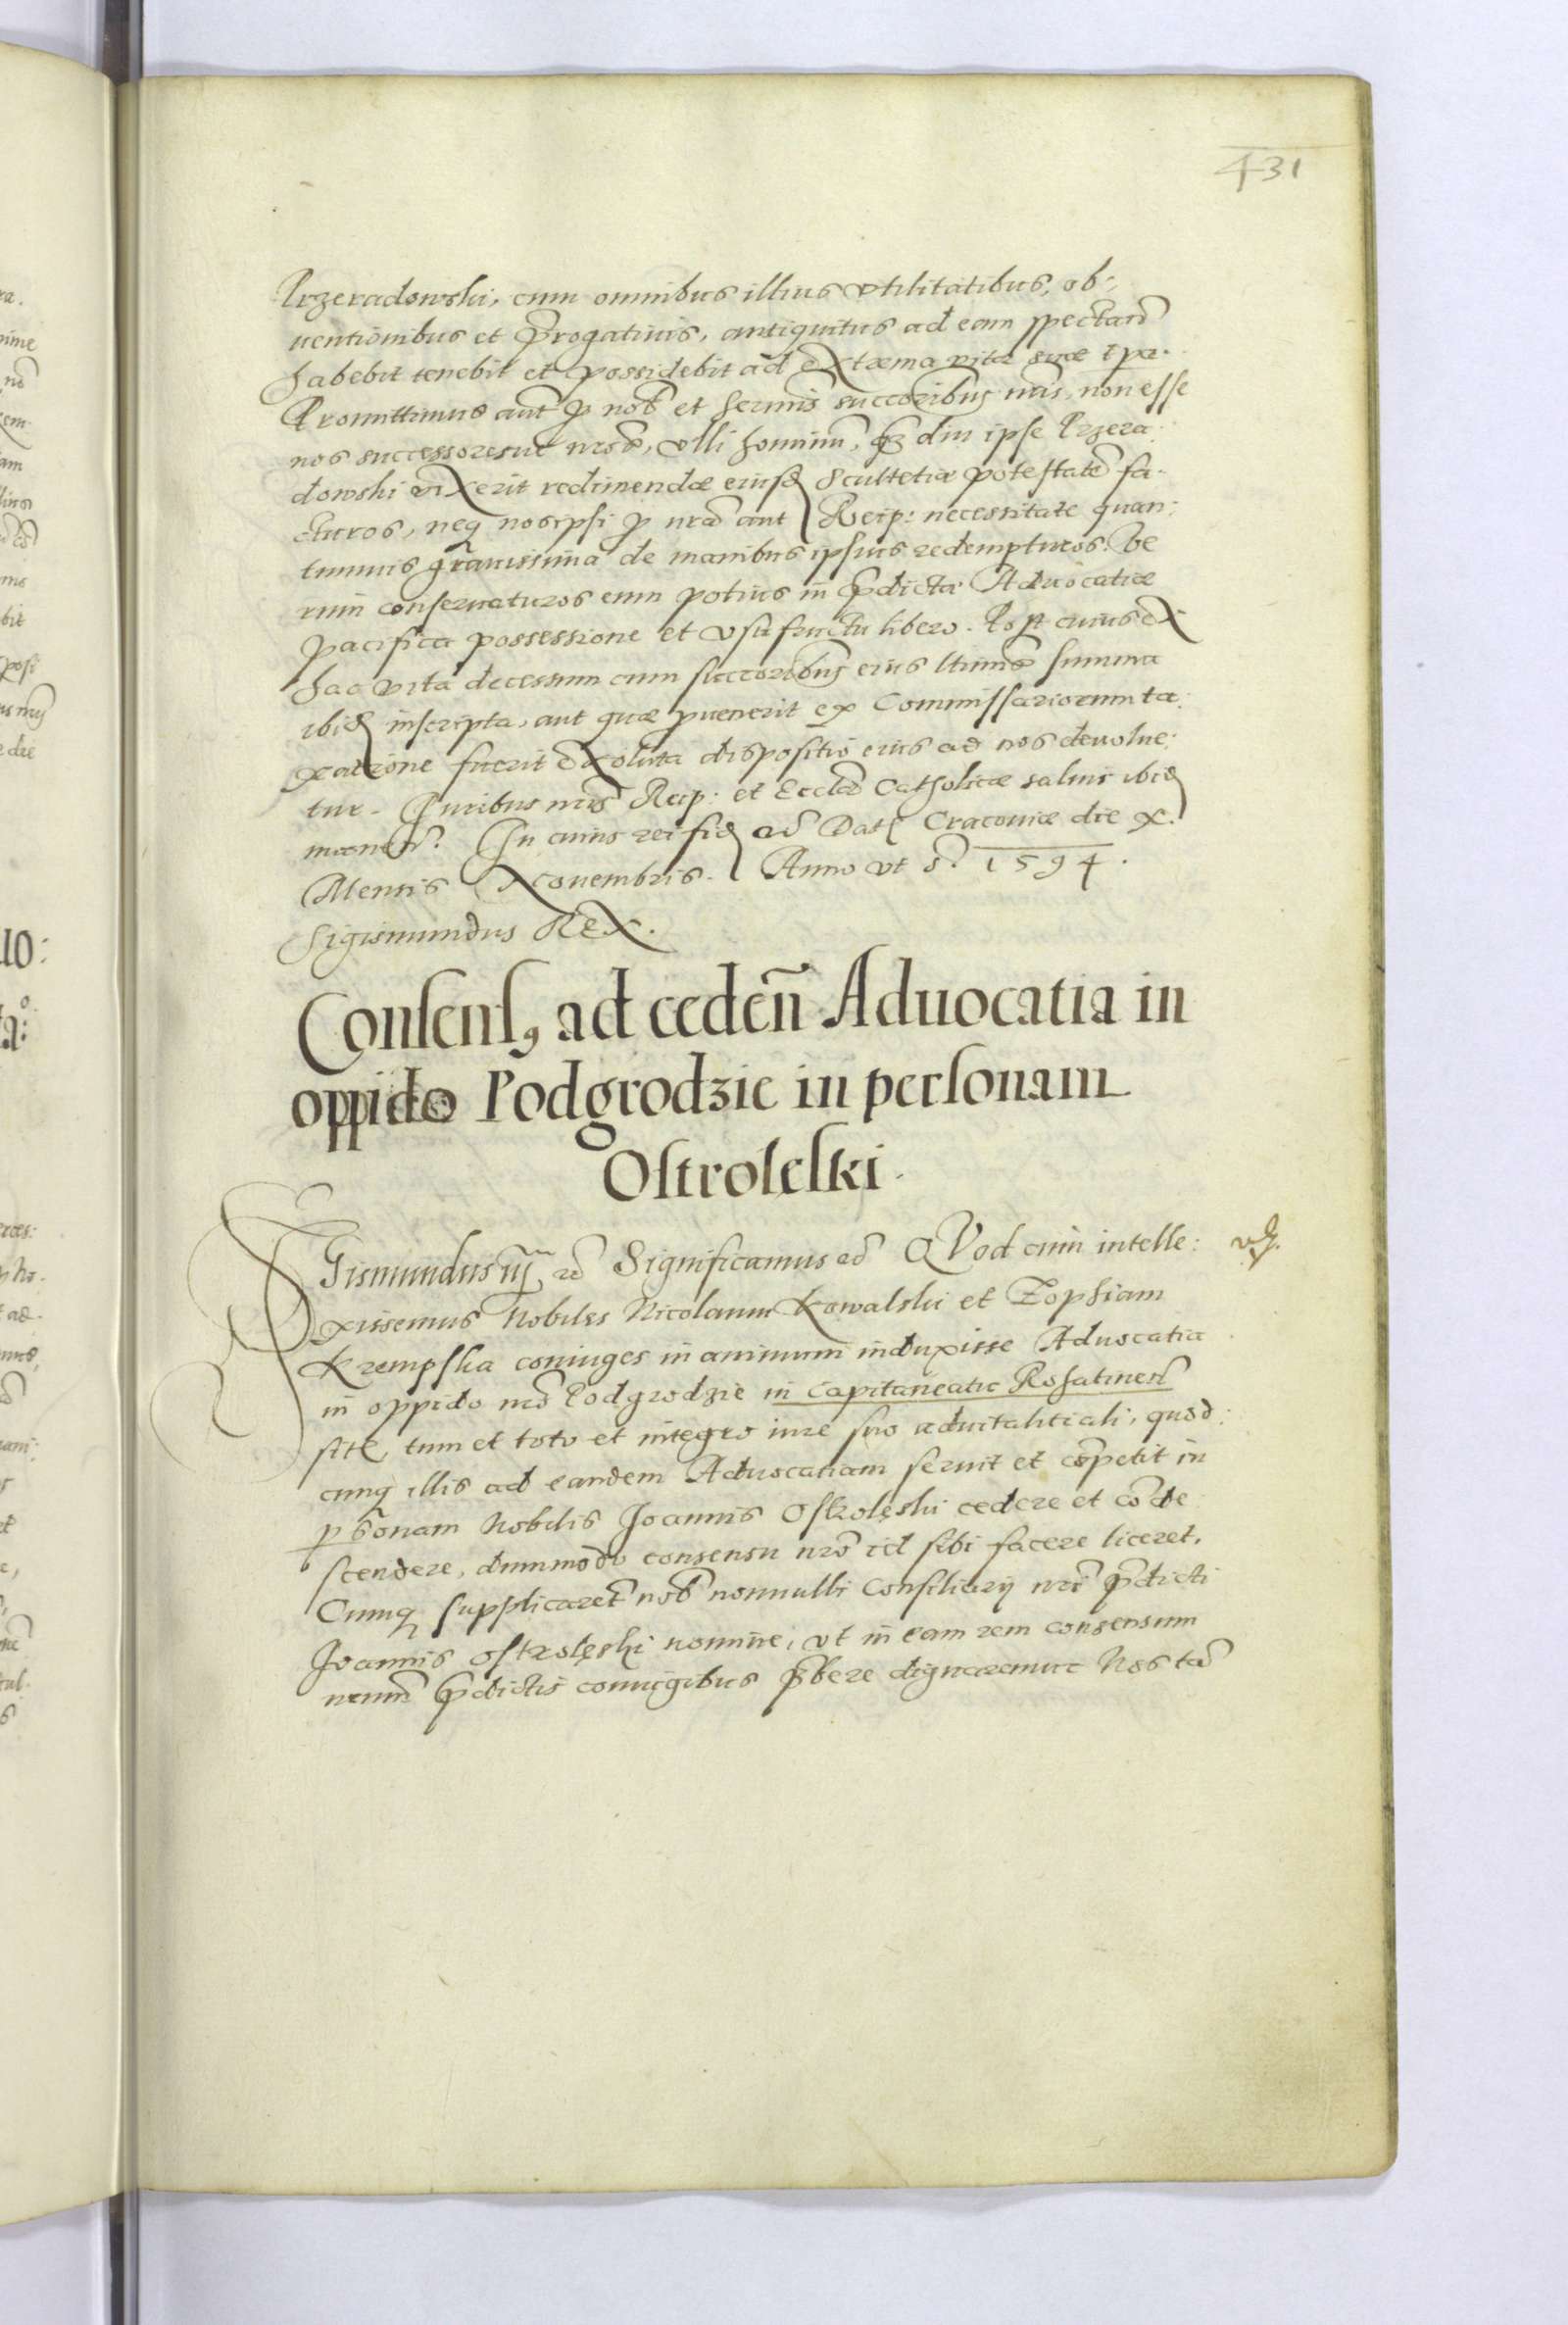 431
Przeradowski, cum omnibus illius vtilitatibus, ob:
uentionibus et p̃rogatiuis, antiquitus ad eam spectañ
habebit tenebit et possidebit ad extræma vitæ suæ tpa.
Promittimus aut̃ p nob̃ et sermis̃ succoribus nr̃is, non esse
nos successoresue nr̃os, vlli hominũ, qz diu ipse Przera:
dowski vixerit redimendæ eiusd scultetiæ potestatẽ fa:
cturos, neq nosipsi p nr̃a aut Reip: necessitate quan:
tumuis grauissima de manibus ipsius redempturos. Ve
rum conseruaturos eum potius in p̃dicta Aduocatiæ
pacifica possessione et vsufructu libero. Post cuius ex
hac vita decessum cum succoribus eius ltimis̃ summa
ibid inscripta, aut quæ puenerit ex Commissariorum ta:
xatione fuerit exoluta dispositio eius ad nos deuolue:
tur. Iuribus nr̃is Reip: et Eccl̃æ Catholicæ saluis ibid
manen̄. In cuius rei fid ec̃ Dat Cracouiæ die X.
Mensis Nouembris. Anno vt s. 1594.
Sigismundus Rex.
Consens9 ad ceden̄ Aduocatia in
oppido Podgrodzie in personam
Ostrolęski.
Sigismundus iij rẽ Significamus ec̃ QVod cum intelle:
xissemus Nobiles Nicolaum Kowalski et Zophiam
Krempska coniuges in animum induxisse Aduocatia
in oppido nr̃o Podgrodzie in Capitaneatu Rohatineñ
sit, tum et toto et integro iure suo aduitalitiali, quod:
cunq illis ad eandem Aduocatiam seruit et cõpetit in
psonam Nobilis Joannis Ostrolęski cedere et cõde
scendere, dummodo consensu nr̃o id sibi facere liceret.
Cumq supplicaret̃ nob̃ nonnulli Consiliarij nr̃i p̃dicti
Joannis Ostrolęski nomine, vt in eam rem consensum
nr̃um p̃dictis coniugibus p̃bere dignaremur Nos tã